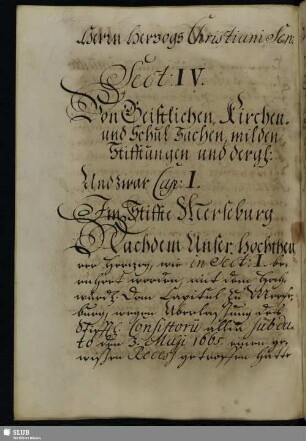 Herrn Herzogs Christiani Sen:
Sect: IV.
Von Geistlichen, Kirchen-
und Schul Sachen, milden
Stifftungen und dergl:
Und zwar Cap: I.
Im Stiffte Merseburg
Nachdem Unser Hochtheu-
rer Herzog, wie in Sect: I. be-
rühret worden, mit dem Hoch-
würd: Dom Capitul zu Merse-
burg, wegen Überlaßung des
Stiffts Consistorii allda sub da-
to den 3. Maji 1665 einen ge-
wißen Recess getroffen hatte
SLUB